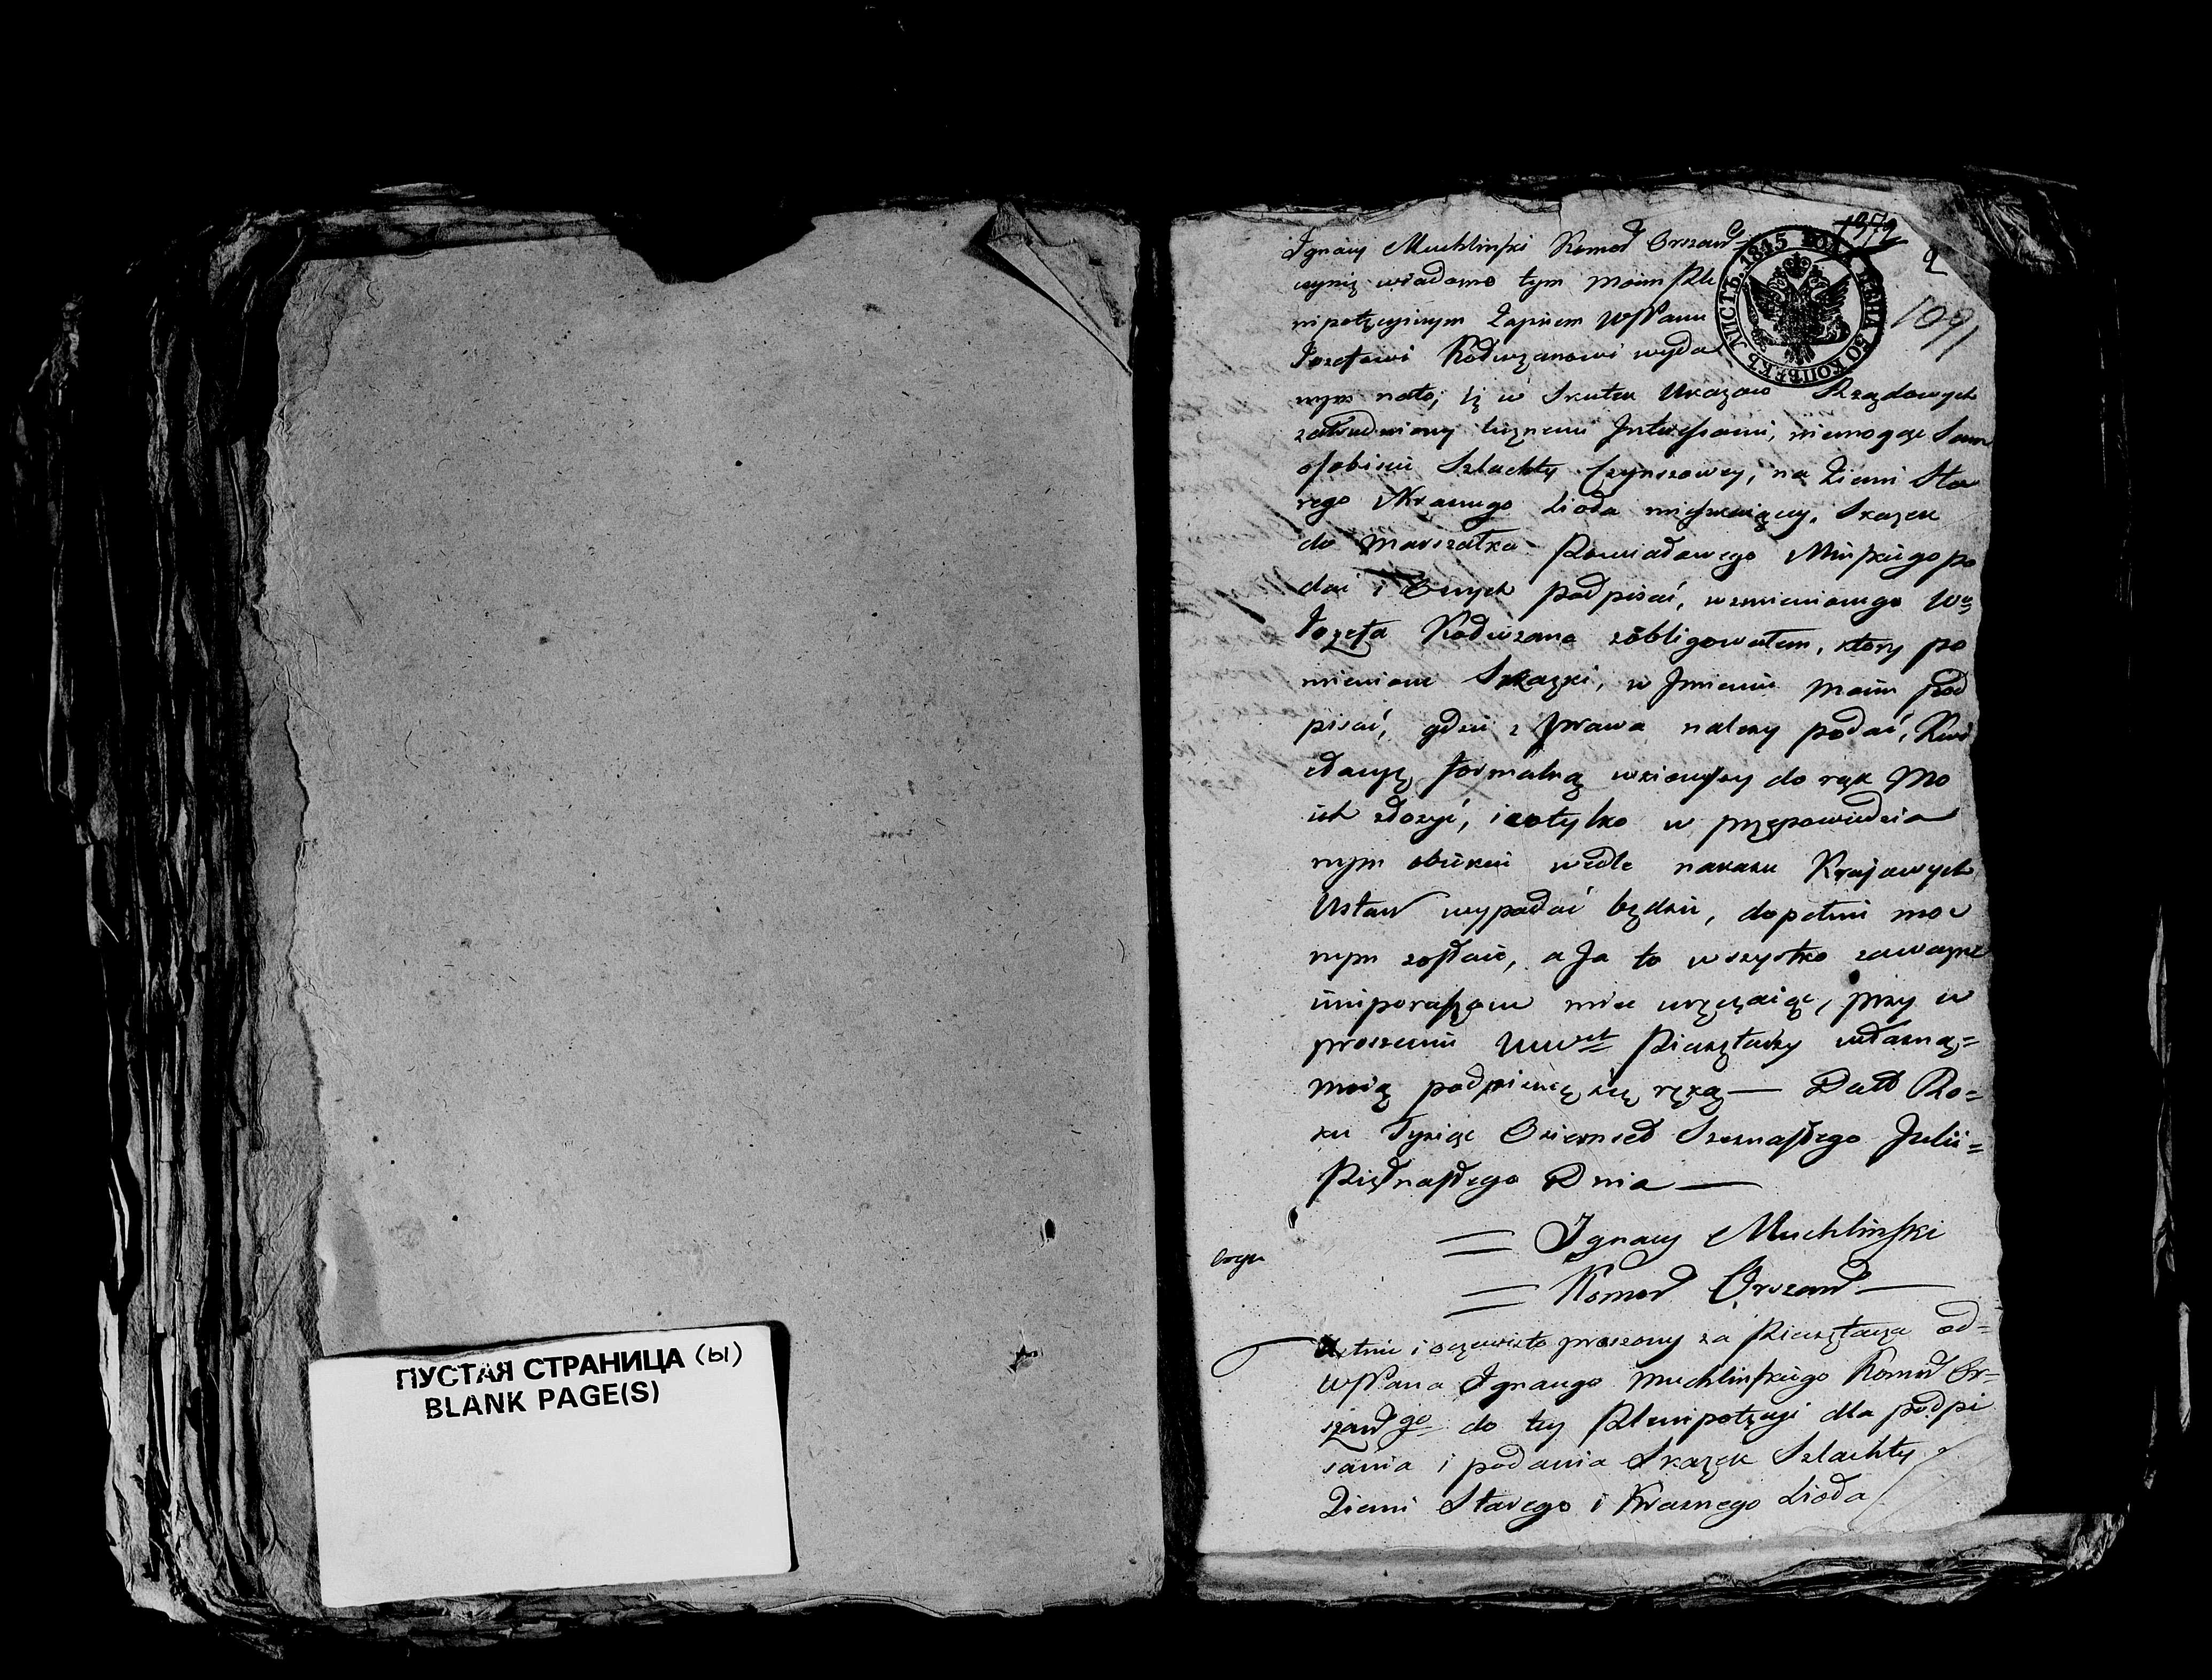 ПУСТАЯ СТРАНИЦА (ы)
BLANK PAGE(S)
1091
2
ЛИСТЪ. 1815 ГОДА ЦѢНА 50 КОПѢЕКЪ
Ignacy Muchlinski Komor Orszans
czynię wiadomo tym moim Ple
nipotęcyinym Zapisem WJPanu
Jozefowi Kodwzanowi wyda
nym nato, iż w Skutek Ukazow Rządowych
zatrudniony licznemi Interessami, niemogąc Sam
osobiscie Szlachty Czynszowey, na Ziemi Sta
rego Krasnego Sioła mieszkaiącey, Skazek
do Marszałka Powiadowego Minskiego po
dac i Onych podpisać, wzmienionego Wo
Jozefa Kodwzana zobligowałem, ktory po
mienione Skazki, w Jmieniu moim pod
pisać, gdzie z Prawa nalezy podać, Kwi
dancyę formalną wziowszy do rąk Mo
ich złozyć, i cotylko w przepowiedzia
nym obiekcie wedle nakazu Krajowych
Ustaw wypadać będzie, dopełnić moc
nym zostaie, a Ja to wszystko zawazne
inieporuszone miec urzęczaiąc, przy u
proszeniu Pieczętarzy własną=
moią podpisuię się ręką — Datt Ro=
ku Tysiąc Osiemset Szesnastego Julii=
Pietnastego Dnia —
= Ignacy Muchlinski
= Komor Orszans —
Ustnie i oczewisto proszony za Pieczętarza od=
WJPana Ignacego Muchlinskiego Komor Or=
szans go do tey Plenipotęcyi dla podpi
sania i podania Skazek Szlachty
Ziemi Starego i Krasnego Sioła